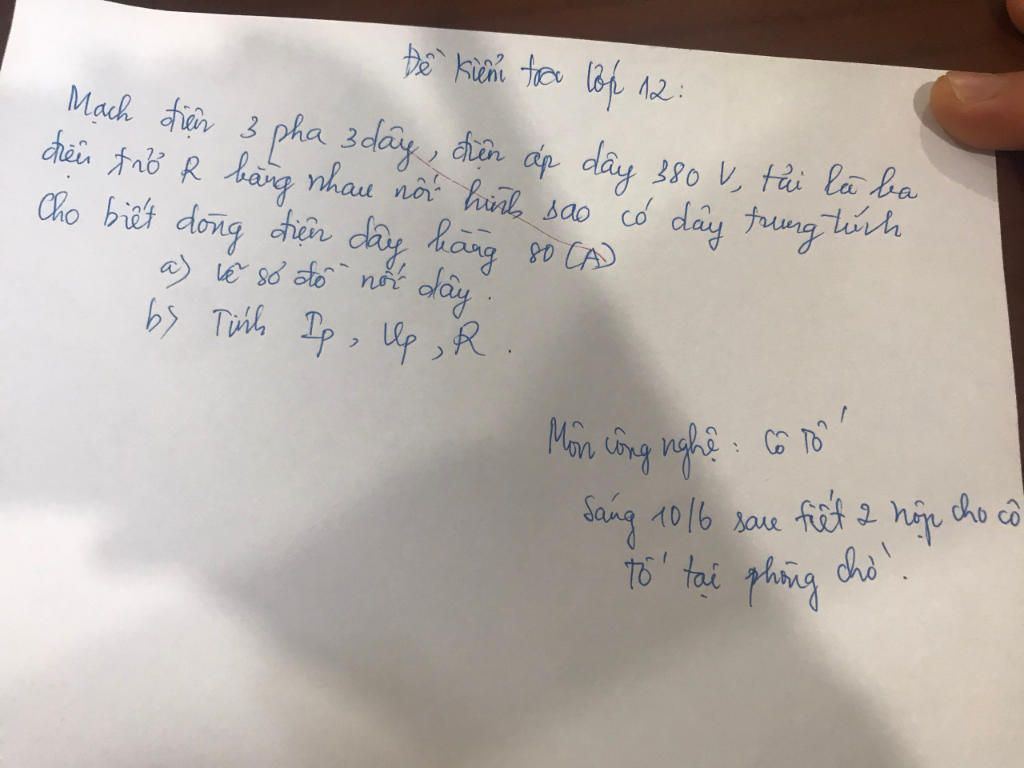 Đề kiểm tra lớp 12:
Mạch điện 3 pha 3 dây, điện áp dây 380 V, tải là ba
điện trở R bằng nhau nối hình sao có dây trung tính
Cho biết dòng điện dây bằng 80 (A)
a) vẽ sơ đồ nối dây.
b) Tính Ip, Up, R.
Môn công nghệ: Cô Tố
Sáng 10/6 sau tiết 2 nộp cho cô
Tố tại phòng chờ.